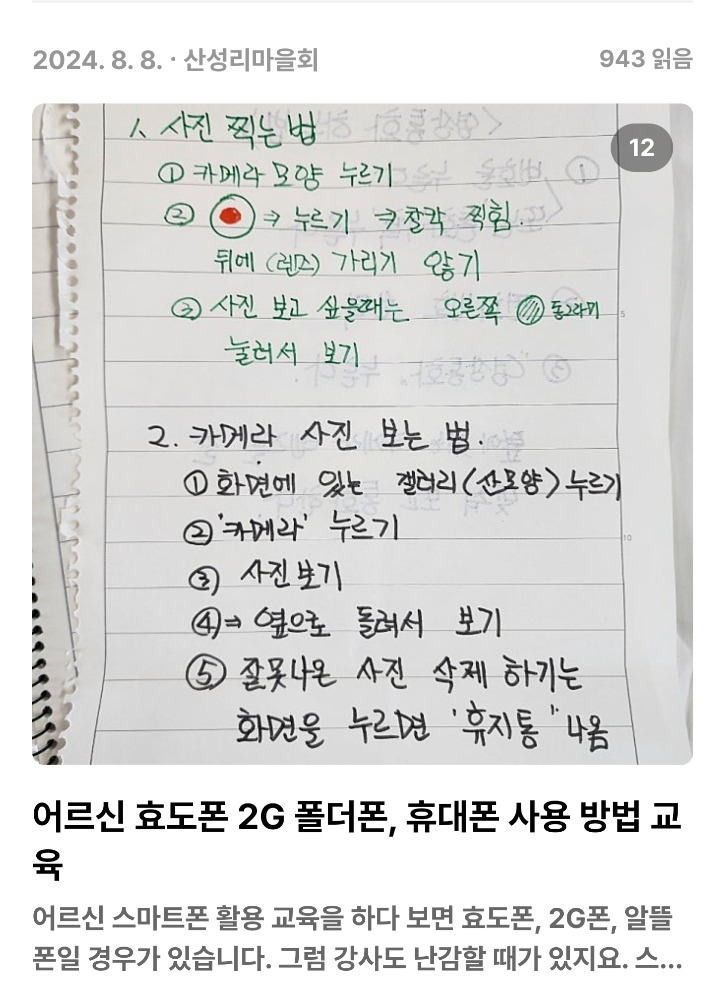 2024. 8. 8. · 산성리마을회
943 읽음
12
1. 사진 찍는법
① 카메라 모양 누르기
② ⇒ 누르기 ⇒ 찰칵 찍힘.
뒤에 (렌즈) 가리기 않기
③ 사진 보고 싶을때는 오른쪽 동그라미
눌러서 보기
2. 카메라 사진 보는 법.
① 화면에 있는 갤러리(산모양) 누르기
② '카메라' 누르기
③ 사진보기
④ ⇒ 옆으로 돌려서 보기
⑤ 잘못나온 사진 삭제 하기는
화면을 누르면 '휴지통" 나옴
5
10
어르신 효도폰 2G 폴더폰, 휴대폰 사용 방법 교
육
어르신 스마트폰 활용 교육을 하다 보면 효도폰, 2G폰, 알뜰
폰일 경우가 있습니다. 그럼 강사도 난감할 때가 있지요. 스...